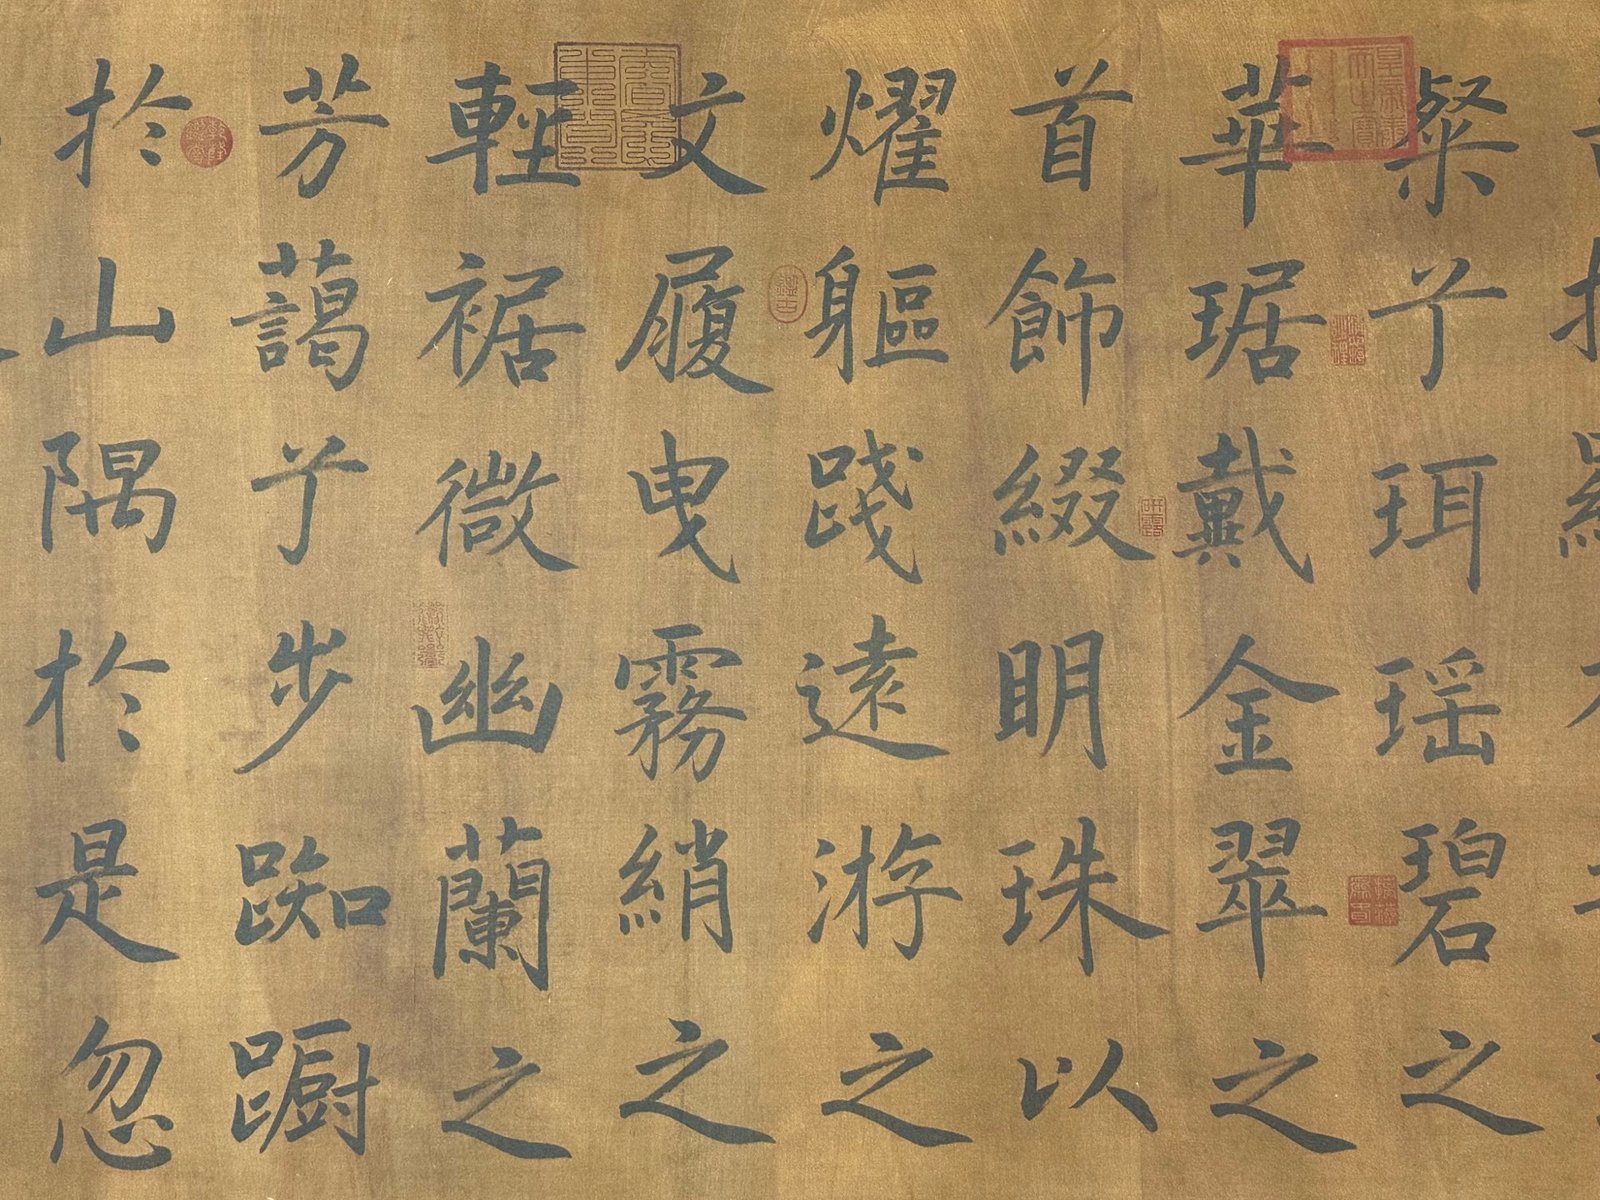 粲兮珥瑶碧之
華琚戴金翠之
首飾綴明珠以
燿軀踐遠游之
文履曳霧綃之
輕裾微幽蘭之
芳藹兮步踟蹰
於山隅於是忽